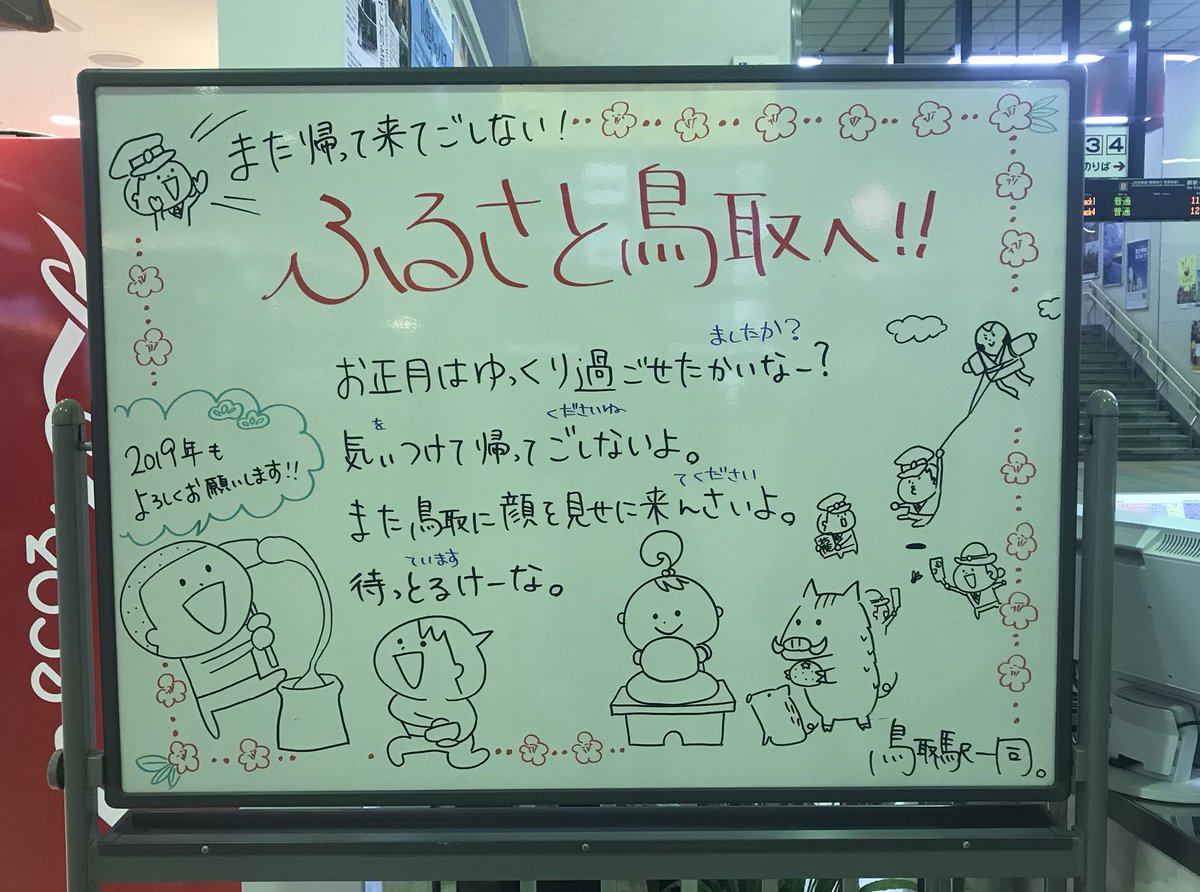 また帰って来てごしない!
ふるさと鳥取へ!!
ましたか?
お正月はゆっくり過ごせたかいなー?
を
くださいね
気ぃつけて帰ってごしないよ。
てください
また鳥取に顔を見せに来んさいよ。
ています
待っとるけーな。
2019年も
よろしくお願いします!!
鳥取駅一同。
3 4
のりば→
普通
普通
eco